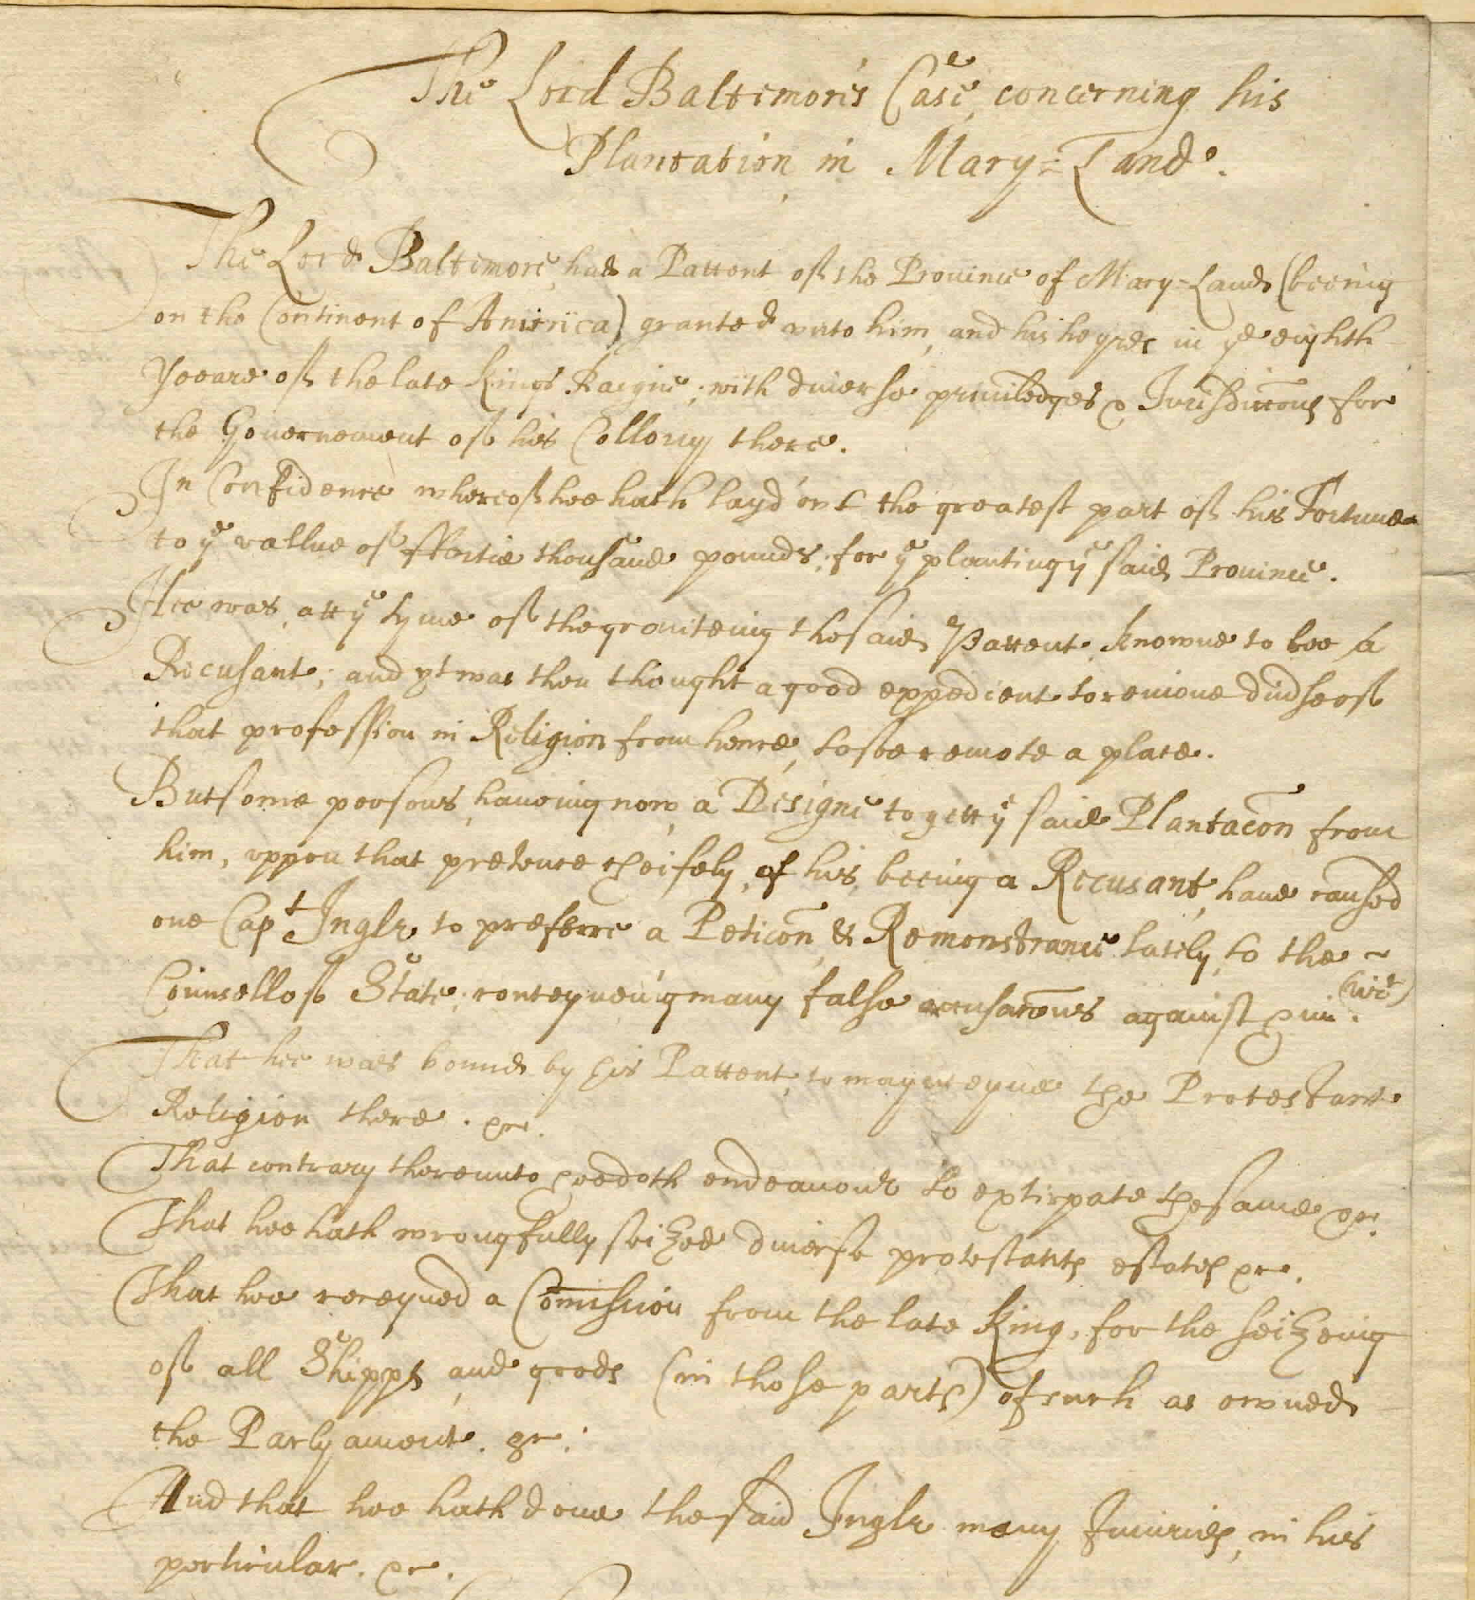 The Lord Baltimore's Case, concerning his
Plantation in Mary=Land.
The Lord Baltimore, had a Pattent of the Prouince of Mary=Land (beeing
on the Continent of America) granted vnto him, and his heyres in ye eighth
Yeeare of the late Kings Raigne; with diuerse priuiledges & Jurisdiccons for
the Gouernement of his Collony there.
In Confidence whereof hee hath layd out the greatest part of his Fortune
to ye vallue of ffortie thousand pounds, for ye planting ye said Prouince.
Hee was, att ye tyme of the granteing the said Pattent, knowne to bee a
Recusant; and yt was then thought a good expedient to remoue
that profession in Religion from hence, to soe remote a place.
But some persons, haueing now, a Designe to gett ye said Plantacon from
him, vppon that pretence cheifely, of his, beeing a Recusant, haue caused
one Capt Ingle to preferre a Peticon & Remonstrance lately, to the
Counsell of State; conteyneing many false accusacons against him. (vizt)
That hee was bound by his Pattent, to mayneteyne the Protestant
Religion there. &c.
That contrary thereunto hee doth endeauour to extirpate the same &c.
That hee hath wrongfully seized diuerse protestants estates &c.
That hee receyued a Comission from the late King, for the seizeing
of all Shipps, and goods (in those parts) of such as owned
the Parlyament. &c:
And that hee hath done the said Ingle many Iniuries, in his
perticular. &c.